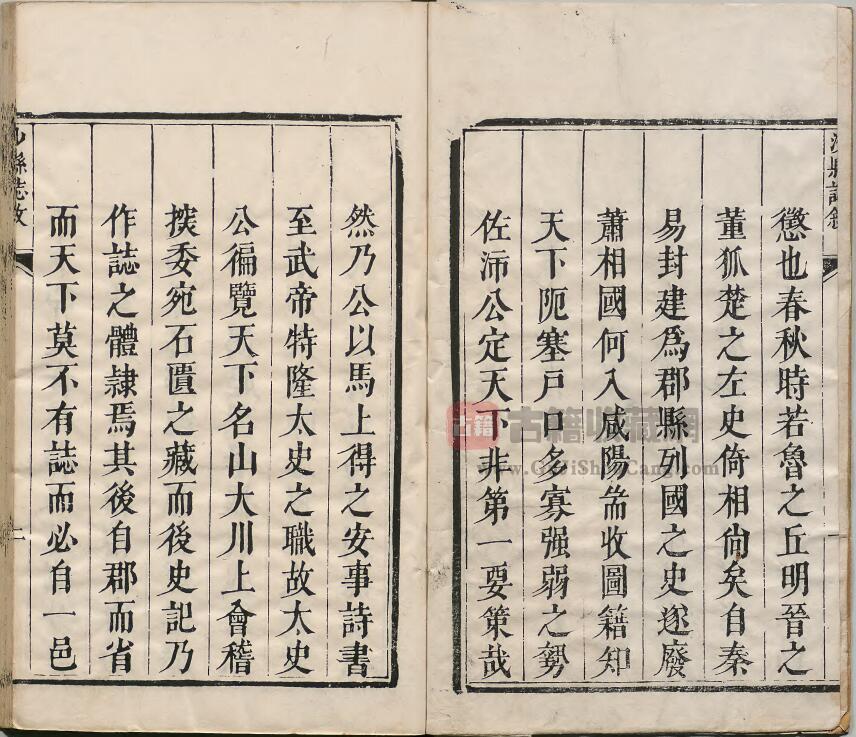 懲也春秋時若魯之丘明晉之
董狐楚之左史倚相尙矣自秦
易封建爲郡縣列國之史遂廢
蕭相國何入咸陽耑收圖籍知
天下阨塞戶口多寡强弱之勢
佐沛公定天下非第一要策哉
然乃公以馬上得之安事詩書
至武帝特隆太史之職故太史
公徧覽天下名山大川上會稽
探委宛石匱之藏而後史記乃
作誌之體隸焉其後自郡而省
而天下莫不有誌而必自一邑
縣誌
二
古籍
古籍收藏網
www.GuJiShouCang.com